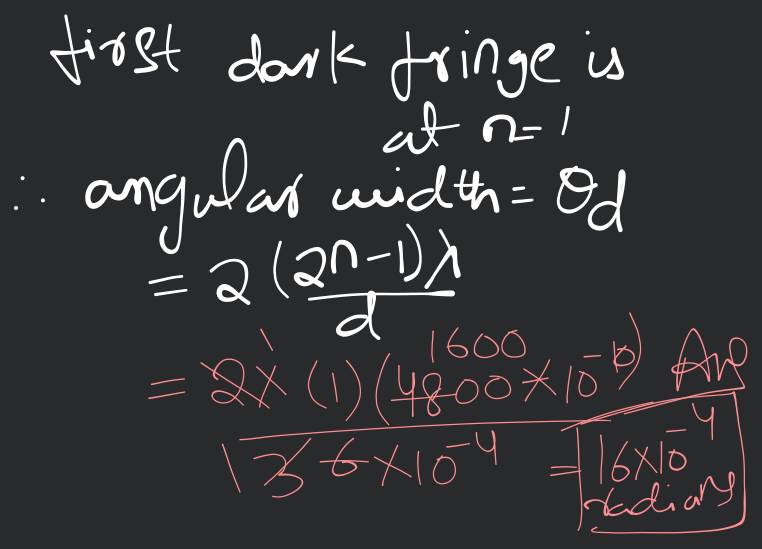 first dark fringe is
at n=1
∴ angular width = θd
= 2 (2n-1)λ
d
1600
= 2x (1) (4800×10^-10) Ans
1 3 6×10^-4 = 16×10^-4
radians